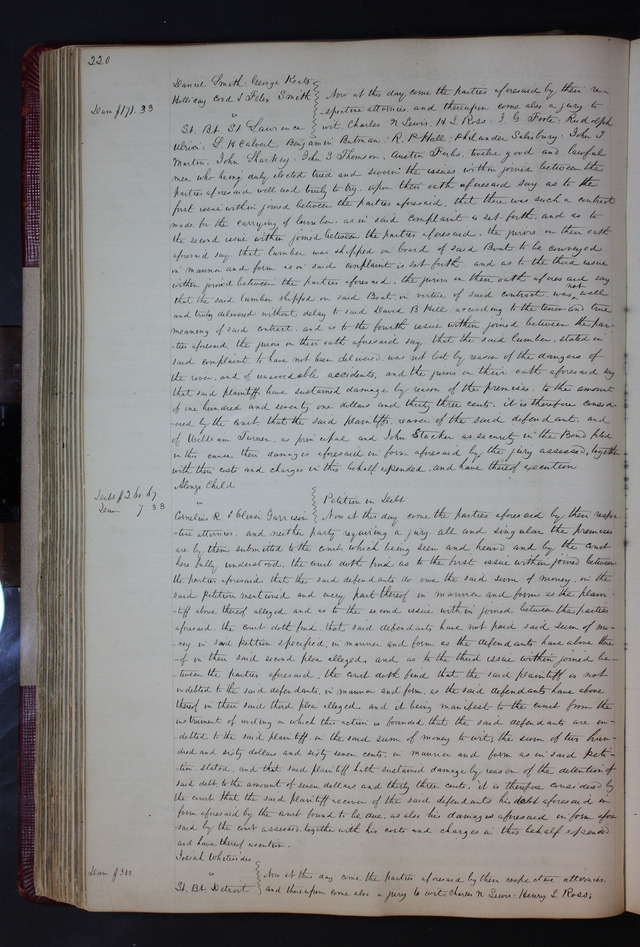 220
Daniel Smith, George Keats
Holliday Cord & Felix Smith
Dam $171.33
Now at this day come the parties aforesaid by their re-
"
spective attornies, and thereupon come also a jury to
St. Bt. St Lawrence
wit Charles N Lewis. H L Ross. J G Foote. Rudolph
Ulrici. L H Calvert. Benjamin Bateman. R. P. Hall. Philander Salisbury. John T
Martin. John Starkey. John J Thomson. Austin twelve good and lawful
men who being duly elected tried and sworn the issues within joined between the
parties aforesaid well and truly to try. Upon their oath aforesaid say as to the
first issue within joined between the parties aforesaid, that there was such a contract
made for the carrying of lumber, as in said complaint is set forth, and as to
the second issue within joined between the parties aforesaid, the jurors on their oath
aforesaid say, that lumber was shipped on board of said Boat to be conveyed
in manner and form as in said complaint is set forth and as to the third issue
within joined between the parties aforesaid, the jurors on their oath aforesaid say
that the said lumber shipped on said Boat, in virtue of said contract, was not well
and truly delivered without delay to said David B Hill, according to the tenor and true
meaning of said contract, and as to the fourth issue within joined between the par-
ties aforesaid, the jurors on their oath aforesaid say that the said lumber, stated in
said complaint, to have not been delivered, was not lost by reason of the dangers of
the river, and of unavoidable accidents, and the jurors on their oath aforesaid say
that said plaintiffs have sustained damage by reason of the premises, to the amount
of one hundred and seventy one dollars and thirty three cents. it is therefore consid-
ered by the court, that the said plaintiffs recover of the said defendant. and
of William Turner, as principal and John Stocker as security in the Bond filed
in this cause their damages aforesaid in form aforesaid by the jury assessed, together
with their costs and charges in this behalf expended, and have thereof execution
Alonzo Child
Debt $260.67
Dam 7.33
"
Petition in Debt
Cornelius R & Oliver Garrison
Now at this day come the parties aforesaid by their respec-
-tive attornies. and neither party requiring a jury, all and singular the premises
are by them submitted to the court, which being seen and heard and by the court
here fully understood, the court doth find as to the first issue within joined between
the parties aforesaid that the said defendants do owe the said sum of money in the
said petition mentioned and every part thereof in manner and form as the plain-
tiff above thereof alleged and as to the second issue within joined between the parties
aforesaid, the court doth find, that said defendants have not paid said sum of mo-
ney in said petition specified, in manner and form as the defendants have above there
-of in their said second plea alleged, and as to the third issue within joined be-
tween the parties aforesaid, the court doth find that the said plaintiff is not
indebted to the said defendants, in manner and form, as the said defendants have above
thereof in their said third plea alleged. and it being manifest to the court from the
instrument of writing on which this action is founded that the said defendants are in-
-debted to the said plaintiff in the said sum of money to wit, the sum of two hun-
dred and sixty dollars and sixty seven cents, in manner and form as in said peti-
tion stated, and that said plaintiff hath sustained damage by reason of the detention of
said debt, to the amount of seven dollars and thirty three cents. it is therefore considered by
the court that the said plaintiff recover of the said defendants his debt aforesaid in
form aforesaid by the court found to be due, as also his damages aforesaid in form afore
said by the court assessed, together with his costs and charges in this behalf expended
and have thereof execution.
Josiah Whitesides
Dam $300.
"
Now at this day come, the parties aforesaid by their respective attornies.
St. Bt. Detroit
and thereupon come also a jury to wit, Charles N Lewis: Henry L Ross;